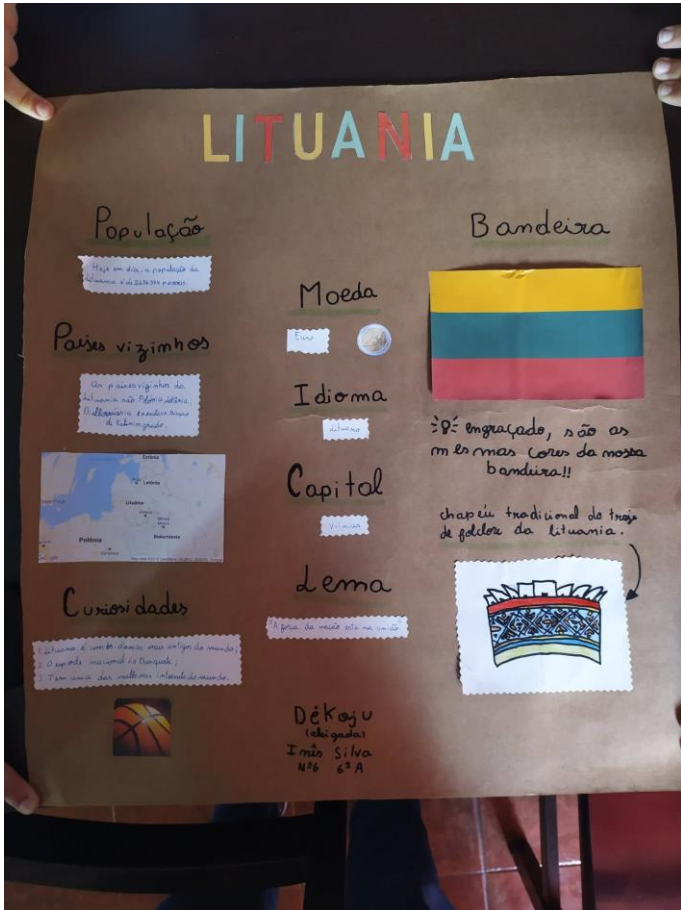 LITUANIA
População
Hoje em dia, a população da
Lituania é de pessoas.
Países vizinhos
Os países vizinhos da
Lituania são Polónia, Letónia,
Bielorrússia
de Kaliningrado.
Estónia
Letónia
Lituânia
Polónia
Bielorrússia
Curiosidades
1. Lituano é um dos idiomas mais antigos do mundo;
2. O esporte nacional é o Basquete;
3. Tem uma das melhores internets do mundo.
Moeda
Euro
Idioma
Lituano
Capital
Vilnius
Lema
"A força da nação esta na união"
Dékoju
(obrigada)
Inês Silva
Nº6 6º A
Bandeira
engraçado, são as
mesmas cores da nossa
bandeira!!
chapéu tradicional do traje
de folclore da lituania.